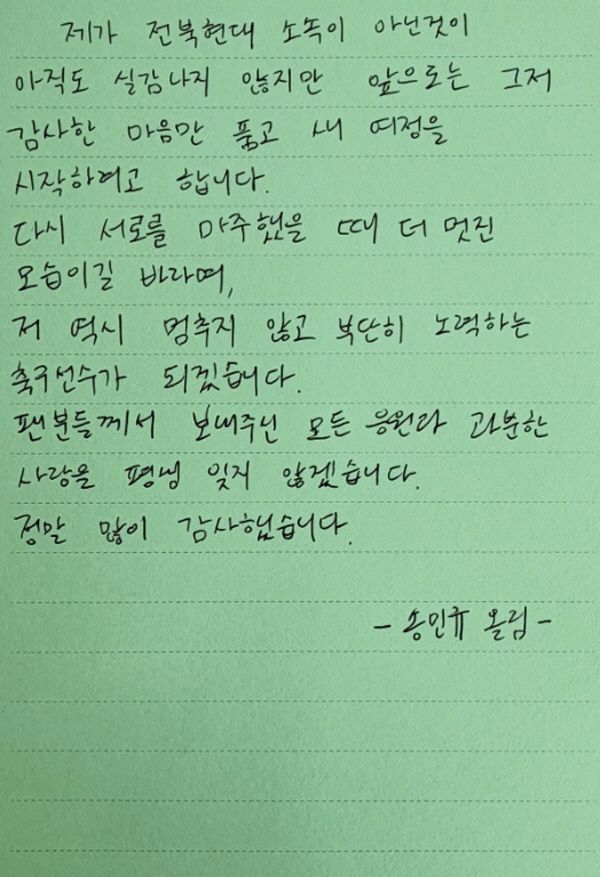 제가 전북현대 소속이 아닌것이
아직도 실감나지 않지만 앞으로는 그저
감사한 마음만 품고 새 여정을
시작하려고 합니다.
다시 서로를 마주했을 때 더 멋진
모습이길 바라며,
저 역시 멈추지 않고 부단히 노력하는
축구선수가 되겠습니다.
팬분들께서 보내주신 모든 응원과 과분한
사랑을 평생 잊지 않겠습니다.
정말 많이 감사했습니다.
- 송민규 올림 -